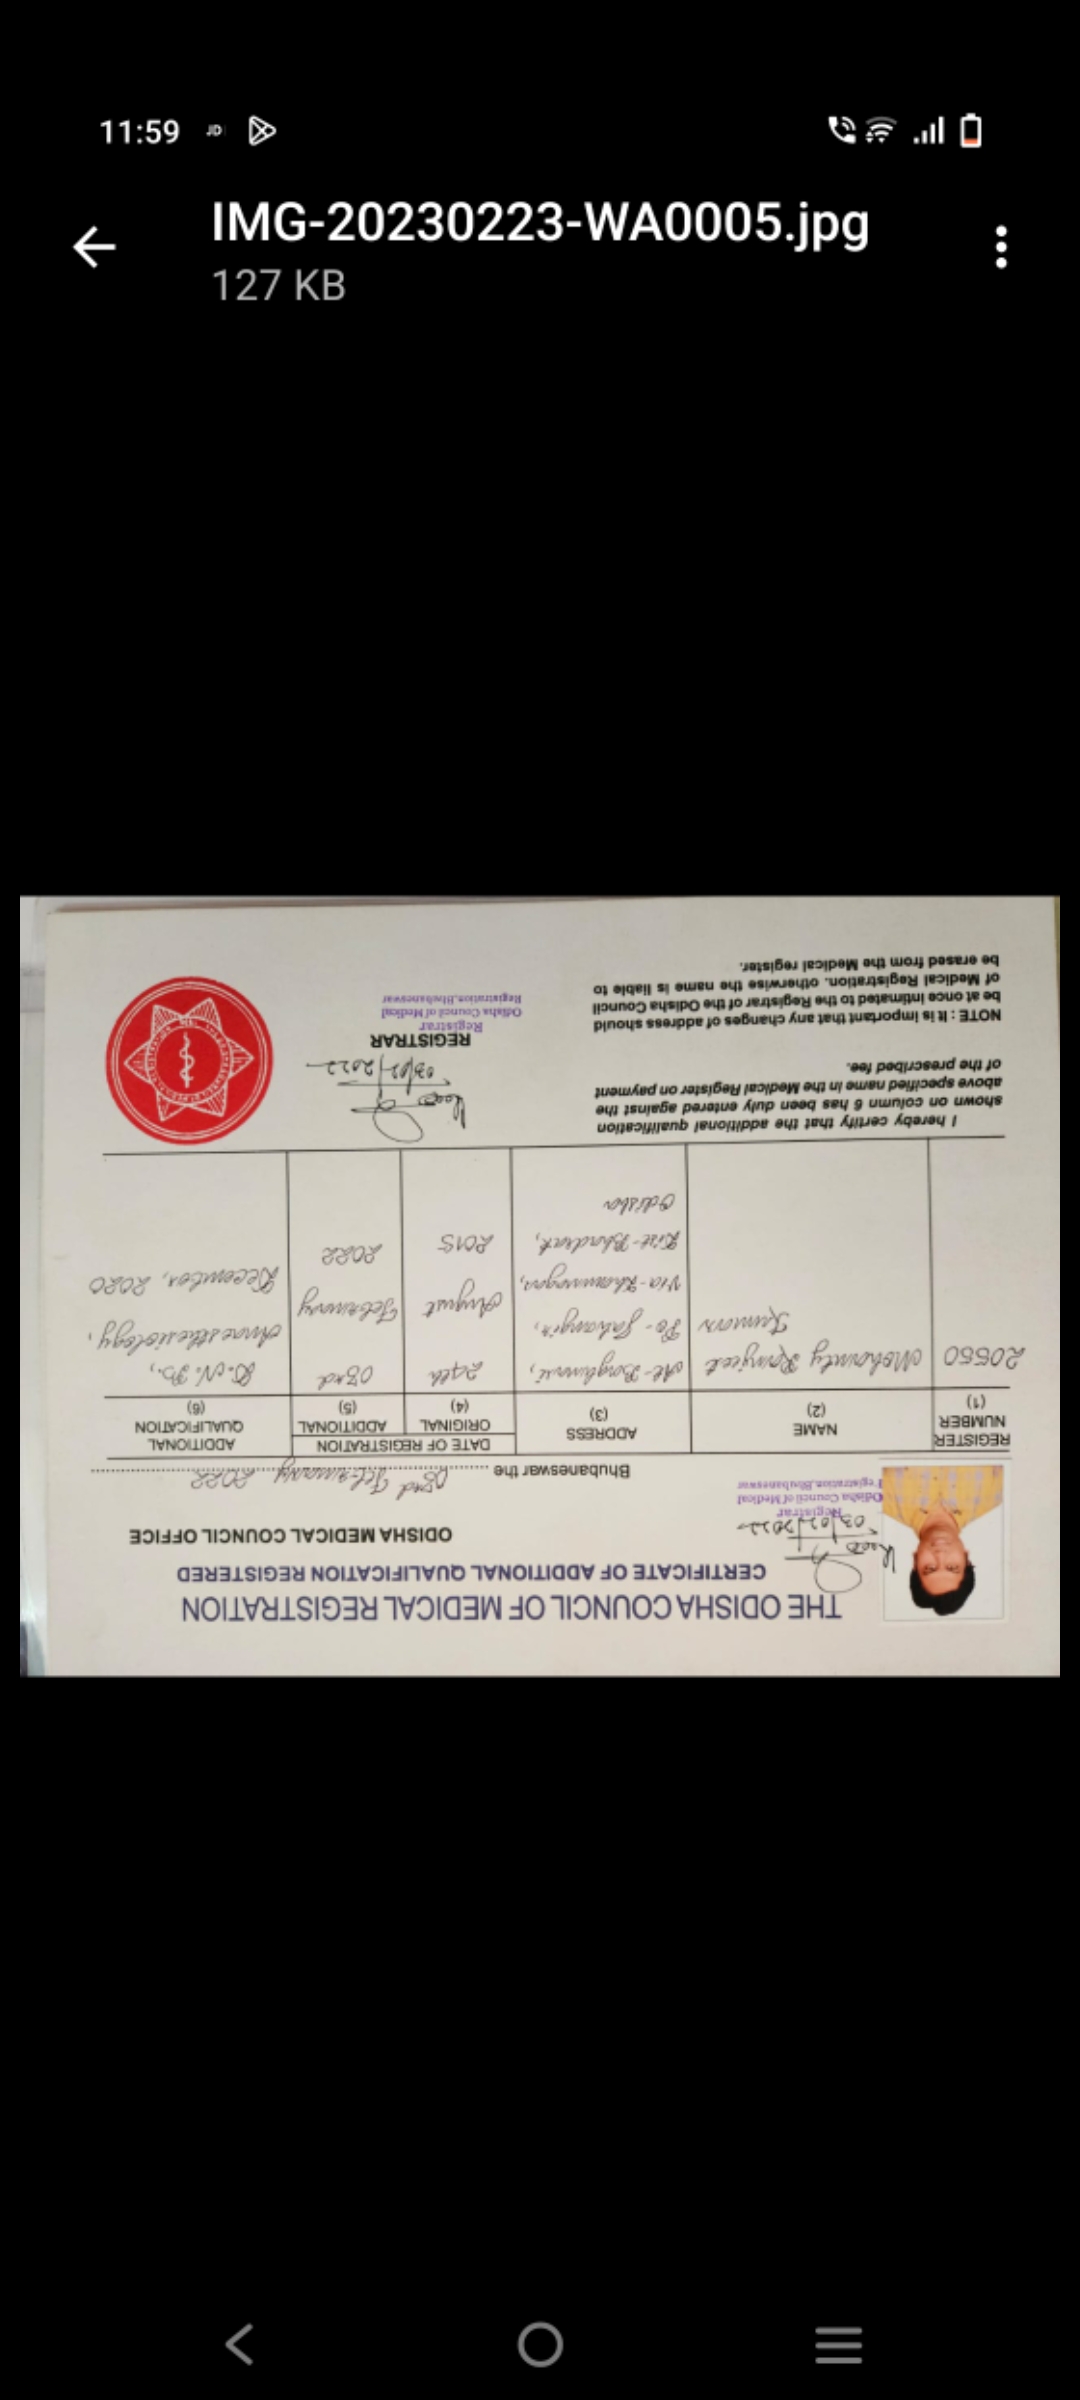 THE ODISHA COUNCIL OF MEDICAL REGISTRATION
CERTIFICATE OF ADDITIONAL QUALIFICATION REGISTERED
ODISHA MEDICAL COUNCIL OFFICE
03/02/2022
Registrar
Odisha Council of Medical
Registration, Bhubaneswar
Bhubaneswar the 03rd February 2022
REGISTER NUMBER (1)
NAME (2)
ADDRESS (3)
DATE OF REGISTRATION
ORIGINAL (4)
ADDITIONAL (5)
ADDITIONAL QUALIFICATION (6)
20550
Mohanty Ranjeet
Kumar
At-Baghurai,
Po-Jahangir,
Via-Dhamnagar,
Dist-Bhadrak,
Odisha
24th
August
2015
03rd
February
2022
D.N.B.,
Anaesthesiology,
December, 2020
I hereby certify that the additional qualification
shown on column 6 has been duly entered against the
above specified name in the Medical Register on payment
of the prescribed fee.
03/02/2022
REGISTRAR
Registrar
Odisha Council of Medical
Registration, Bhubaneswar
NOTE : It is important that any changes of address should
be at once intimated to the Registrar of the Odisha Council
of Medical Registration. otherwise the name is liable to
be erased from the Medical register.
127 KB
IMG-20230223-WA0005.jpg
11:59